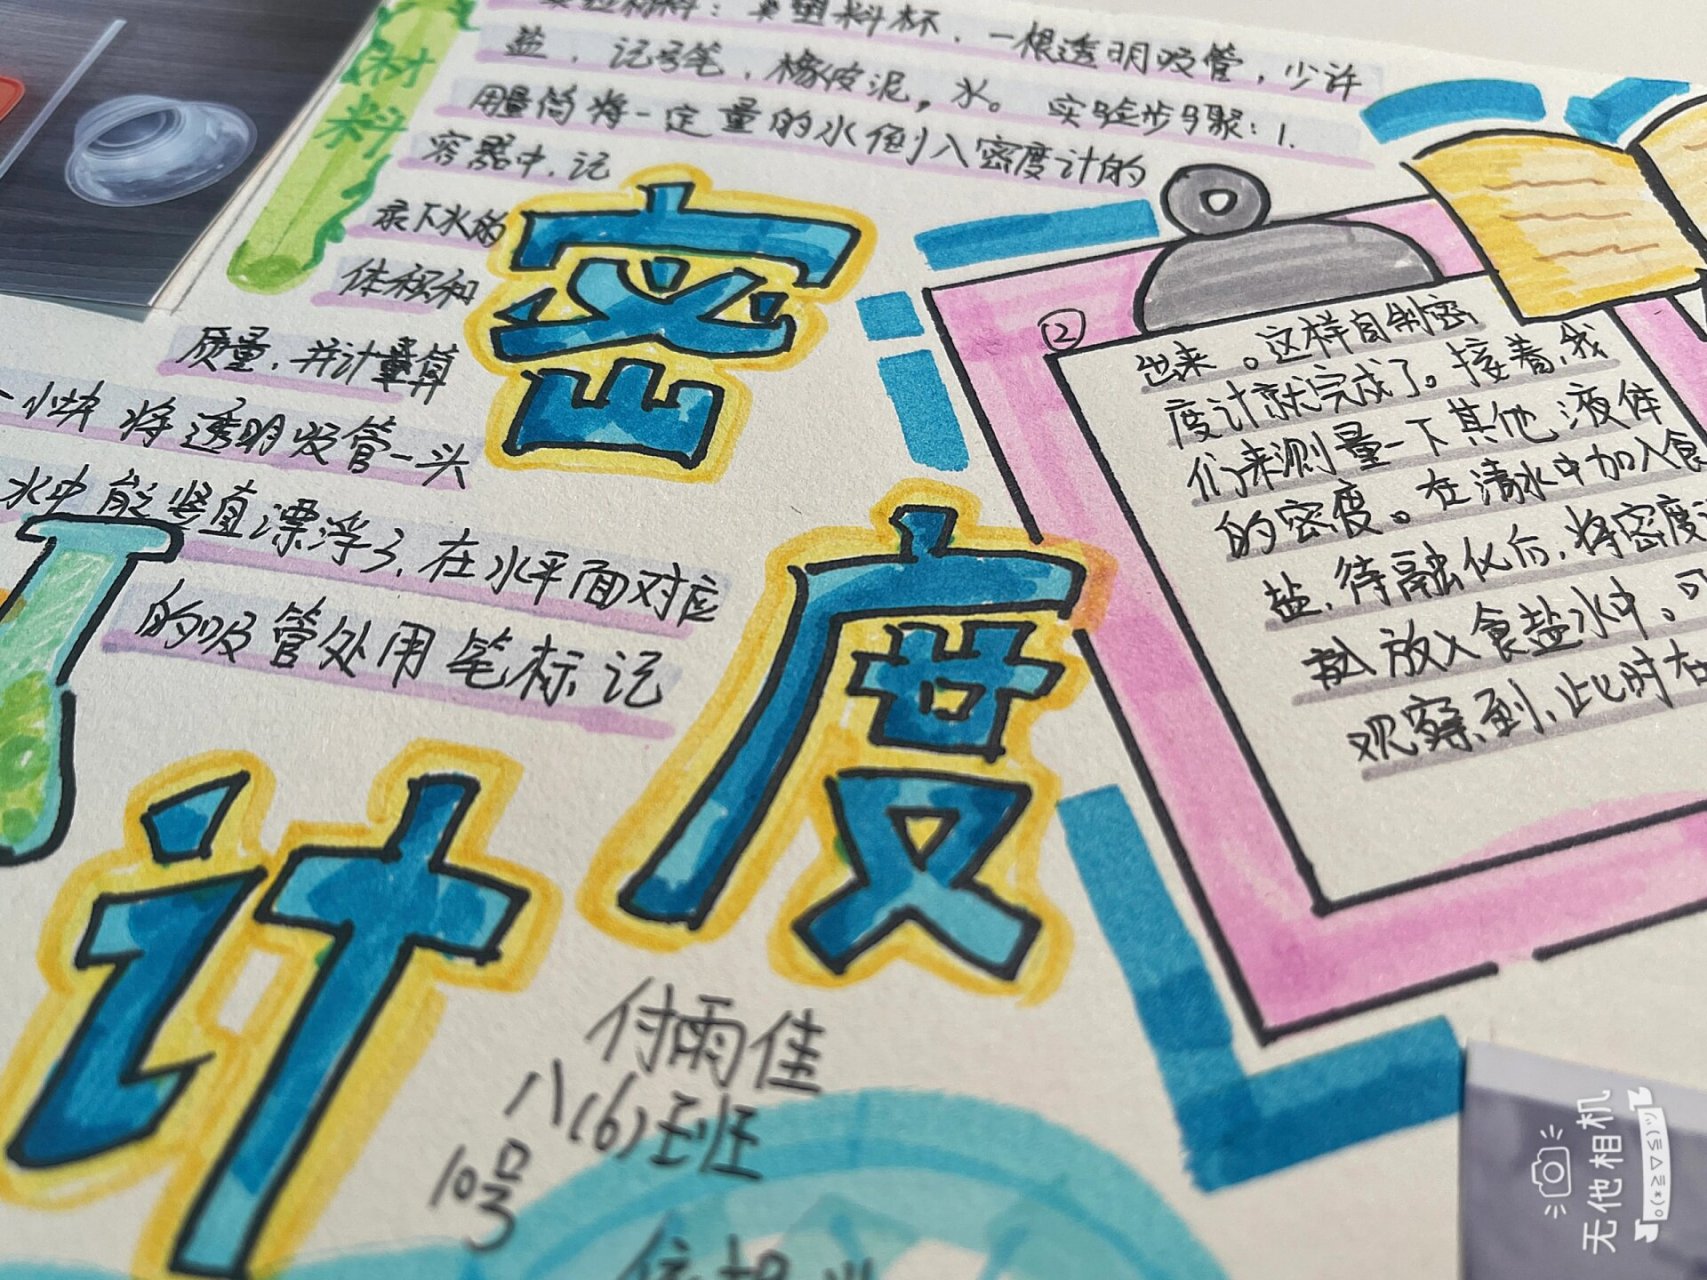 材料
实验材料：塑料杯、一根透明吸管，少许
盐、记号笔、橡皮泥，水。实验步骤：1.
用量筒将一定量的水倒入密度计的
容器中，记
录下水的
体积和
质量，并计算
一小块 将透明吸管一头
水中能竖直漂浮了，在水平面对应
的吸管处用笔标记
密度计
②
出来。这样自制密
度计就完成了。接着，我
们来测量一下其他液体
的密度。在清水中加入食
盐，待融化后，将密度
放入食盐水中。可
观察到，此时在
付雨佳
八(6)班
10号
无他相机